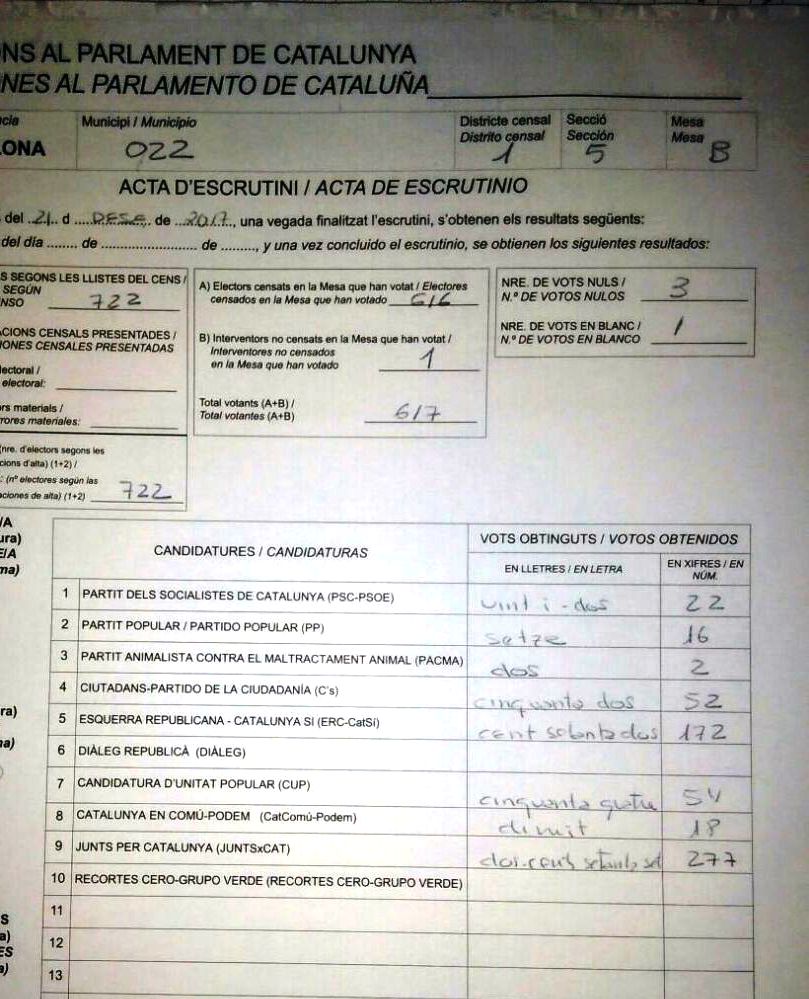 NS AL PARLAMENT DE CATALUNYA
NES AL PARLAMENTO DE CATALUÑA
cia Municipi / Municipio Districte censal Secció Mesa
Distrito censal Sección Mesa
ONA 022 1 5 B
ACTA D'ESCRUTINI / ACTA DE ESCRUTINIO
del 21 d DESE. de 2017, una vegada finalitzat l'escrutini, s'obtenen els resultats següents:
del día ........ de ......................... de ........., y una vez concluido el escrutinio, se obtienen los siguientes resultados:
S SEGONS LES LLISTES DEL CENS /
SEGÚN
NSO 722
CIONS CENSALS PRESENTADES /
IONES CENSALES PRESENTADAS
lectoral /
electoral:
rs materials /
rores materiales:
(nre. d'electors segons les
cions d'alta) (1+2) /
: (nº electores según las
aciones de alta) (1+2) 722
A) Electors censats en la Mesa que han votat / Electores
censados en la Mesa que han votado 616
B) Interventors no censats en la Mesa que han votat /
Interventores no censados
en la Mesa que han votado 1
Total votants (A+B) /
Total votantes (A+B) 617
NRE. DE VOTS NULS /
N.º DE VOTOS NULOS 3
NRE. DE VOTS EN BLANC /
N.º DE VOTOS EN BLANCO 1
/A
ura)
E/A
ma)
ra)
na)
S
a)
ES
a)
CANDIDATURES / CANDIDATURAS VOTS OBTINGUTS / VOTOS OBTENIDOS
EN LLETRES / EN LETRA EN XIFRES / EN
NÚM.
1 PARTIT DELS SOCIALISTES DE CATALUNYA (PSC-PSOE) vint i-dos 22
2 PARTIT POPULAR / PARTIDO POPULAR (PP) setze 16
3 PARTIT ANIMALISTA CONTRA EL MALTRACTAMENT ANIMAL (PACMA) dos 2
4 CIUTADANS-PARTIDO DE LA CIUDADANÍA (C's) cinquanta dos 52
5 ESQUERRA REPUBLICANA - CATALUNYA SÍ (ERC-CatSí) cent setanta dos 172
6 DIÀLEG REPUBLICÀ (DIÀLEG)
7 CANDIDATURA D'UNITAT POPULAR (CUP) cinquanta quatre 54
8 CATALUNYA EN COMÚ-PODEM (CatComú-Podem) divuit 18
9 JUNTS PER CATALUNYA (JUNTSxCAT) dos-cents setanta set 277
10 RECORTES CERO-GRUPO VERDE (RECORTES CERO-GRUPO VERDE)
11
12
13